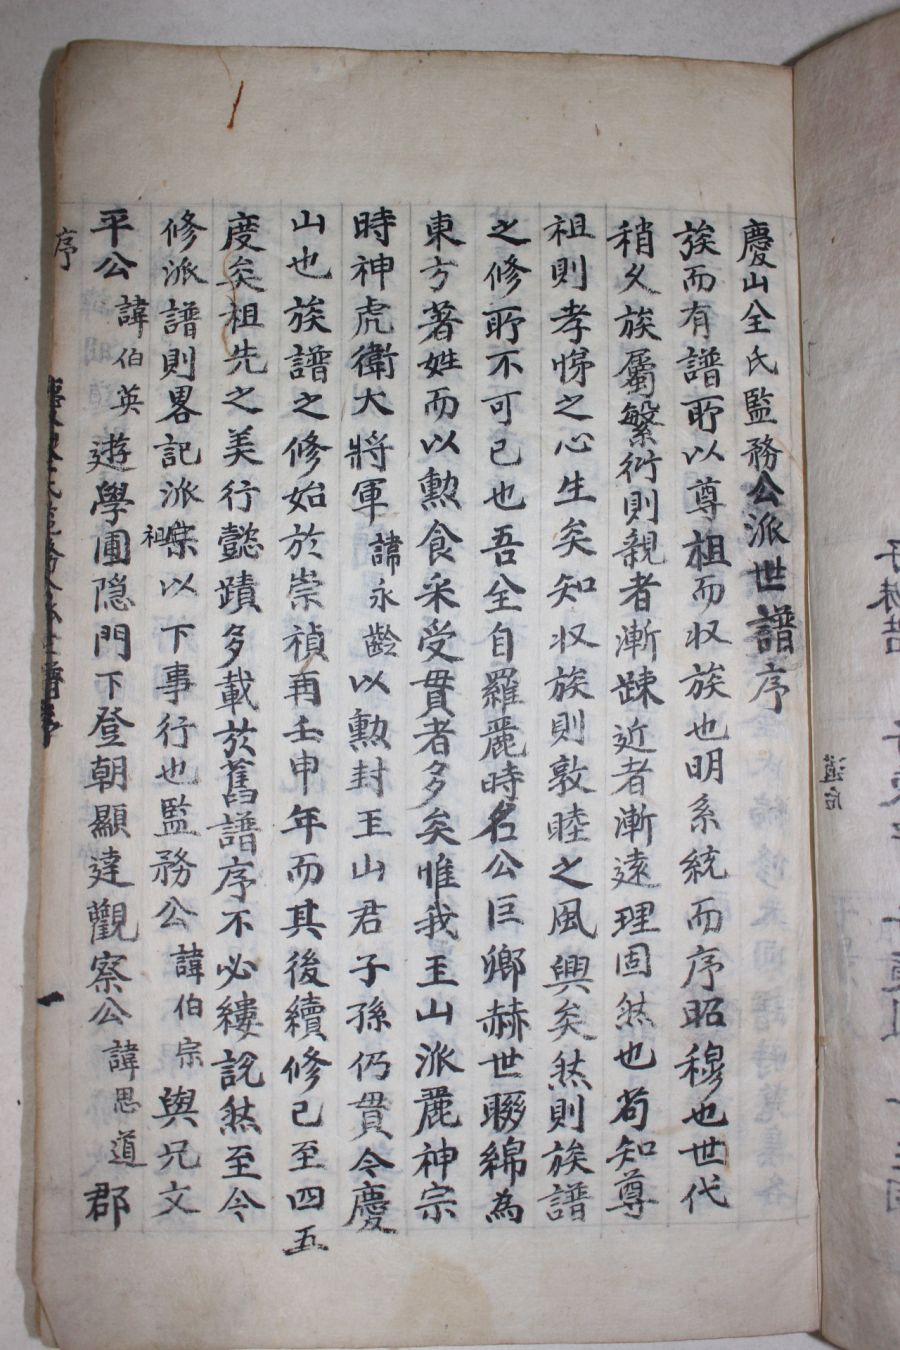 慶山全氏監務公派世譜序
族而有譜所以尊祖而収族也明系統而序昭穆也世代
稍久族屬繁衍則親者漸踈近者漸遠理固然也苟知尊
祖則孝悌之心生矣知収族則敦睦之風興矣然則族譜
之修所不可已也吾全自羅麗時名公巨卿赫世聯綿為
東方著姓而以勲食采受貫者多矣惟我王山派麗神宗
時神虎衛大將軍諱永齡以勲封王山君子孫仍貫今慶
山也族譜之修始於崇禎再壬申年而其後續修已至四五
度矣祖先之美行懿蹟多載於舊譜序不必縷說然至今
修派譜則畧記派祖以下事行也監務公諱伯宗與兄文
平公諱伯英遊學圃隠門下登朝顯達觀察公諱思道郡
序